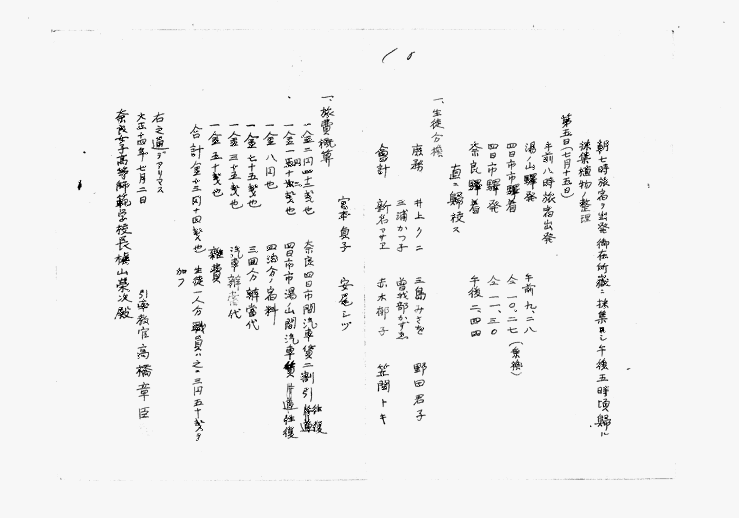 朝七時旅宿ヲ出発 御在所嶽ニ採集ヲシ午後五時頃歸ル
採集植物ノ整理
第五日(七月十五日)
午前八時旅宿出発
湯ノ山驛発 午前九、二八
四日市驛着 仝一〇、二七(乗換)
四日市驛発 仝一一、三〇
奈良驛着 午後二、四四
直ニ歸校ス
一、生徒分擔
庶務 井上クニ 三島みさを 野田君子
三浦かつ子 曽我部かずゑ
會計 新名アサヱ 赤木都子 笠間トキ
宮本貞子 安尾シヅ
一、旅費概算
一金二円四十三銭也 奈良四日市間汽車賃二割引 往復
四日市市湯ノ山間汽車賃 片道 往復
一金八円也 四泊分ノ宿料
一金七十五銭也 三回分辨當代
一金三十五銭也 汽車辨當代
一金五十銭也 雑費
合計金十三円十四銭也 生徒一人分 職員ハ之ニ三円五十銭ヲ
加フ
右之通デアリマス
大正十四年七月二日
引率教官 高橋章臣
奈良女子高等師範学校長槇山榮次殿